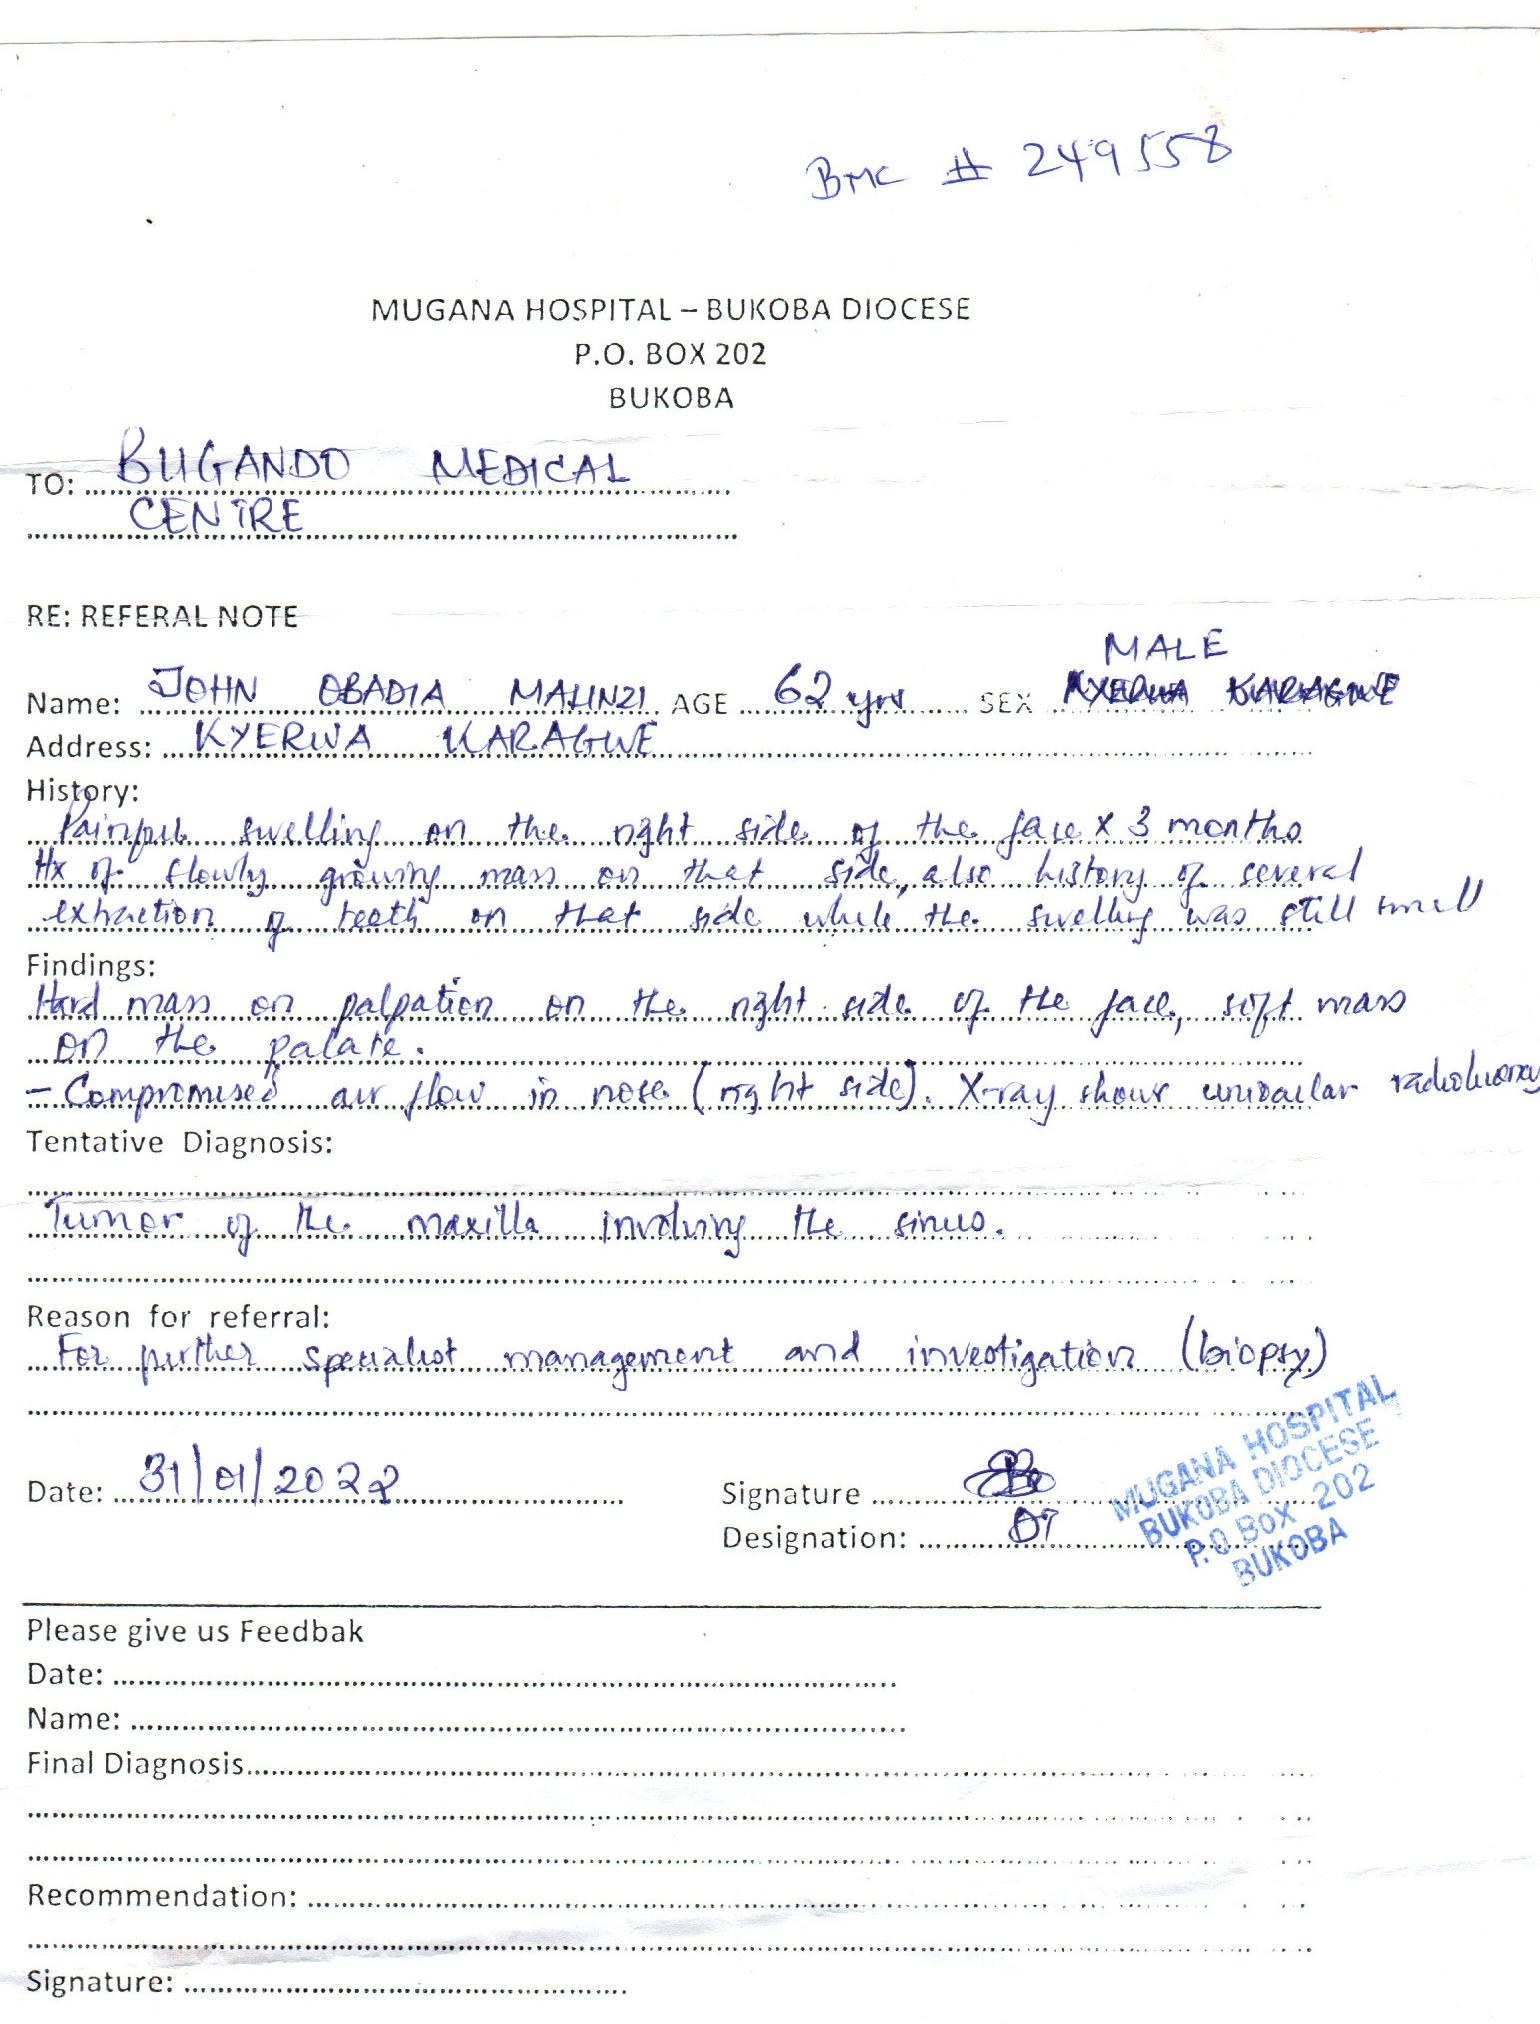 BMC # 249558
MUGANA HOSPITAL – BUKOBA DIOCESE
P.O. BOX 202
BUKOBA
TO: BUGANDO MEDICAL
CENTRE
RE: REFERAL NOTE
MALE
Name: JOHN OBADIA MALINZI AGE 62 yrs SEX KYERWA KARAGWE
Address: KYERWA KARAGWE
History:
Painful swelling on the right side of the face x 3 months
Hx of slowly growing mass on that side, also history of several
extraction of teeth on that side while the swelling was still small
Findings:
Hard mass on palpation on the right side of the face, soft mass
on the palate.
– Compromised air flow in nose (right side). X-ray shows unilocular radiolucency
Tentative Diagnosis:
Tumor of the maxilla involving the sinus.
Reason for referral:
For further specialist management and investigation (biopsy)
Date: 31/01/2022
Signature
Designation:
MUGANA HOSPITAL
BUKOBA DIOCESE
P.O BOX 202
BUKOBA
Please give us Feedbak
Date:
Name:
Final Diagnosis
Recommendation:
Signature: